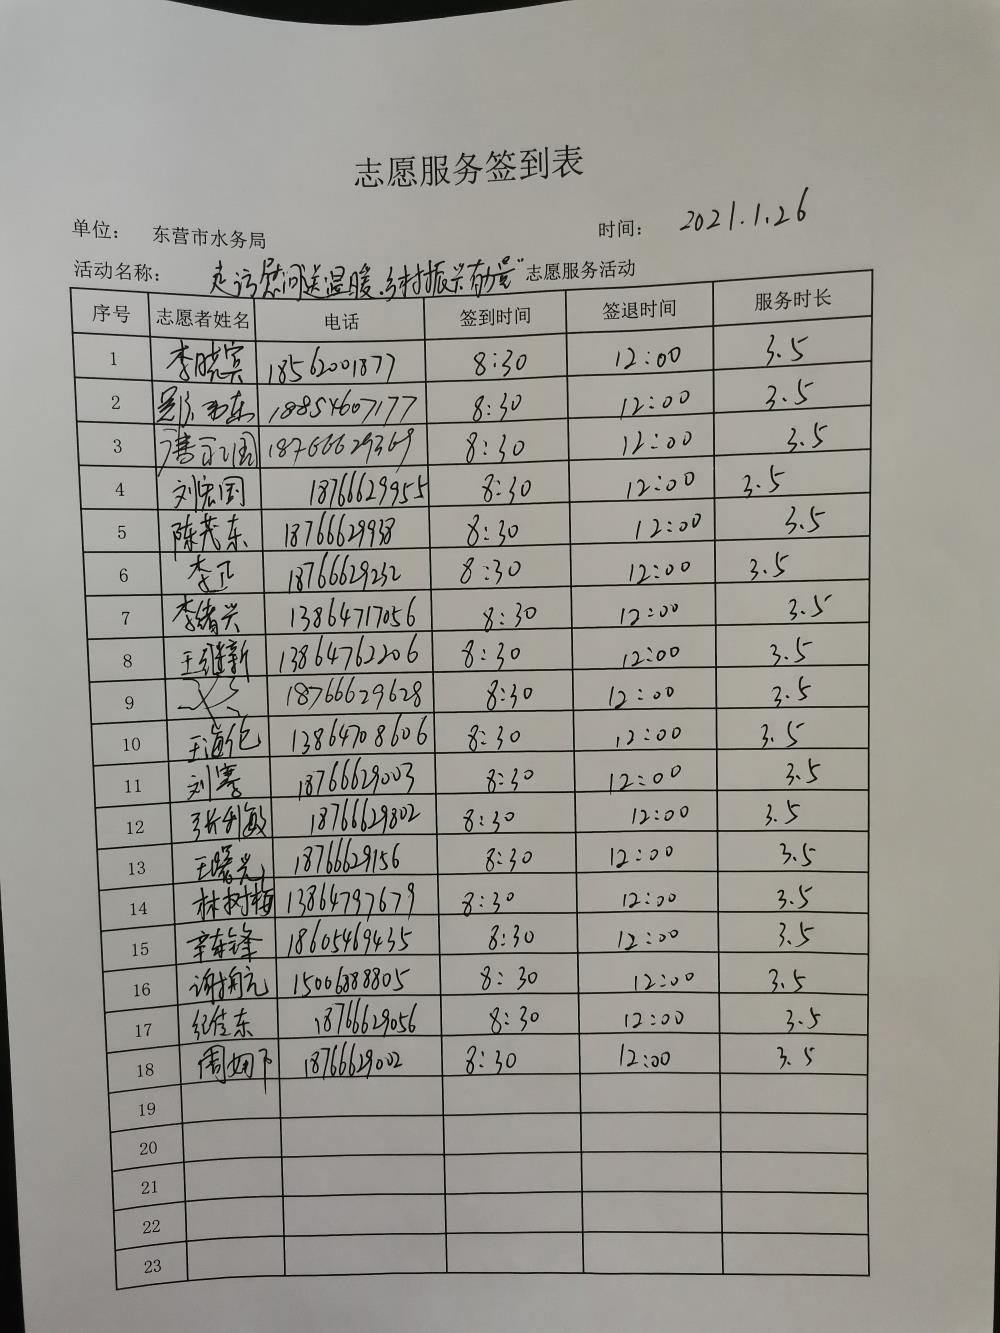 志愿服务签到表
单位： 东营市水务局 时间： 2021.1.26
活动名称： 走访慰问送温暖,乡村振兴有力量"志愿服务活动
序号 志愿者姓名 电话 签到时间 签退时间 服务时长
1 李晓宾 18562001877 8:30 12:00 3.5
2 18854607177 8:30 12:00 3.5
3 18766629369 8:30 12:00 3.5
4 刘宏国 18766629955 8:30 12:00 3.5
5 陈茂东 18766629938 8:30 12:00 3.5
6 李正 18766629232 8:30 12:00 3.5
7 李绪兴 13864717056 8:30 12:00 3.5
8 王继新 13864762206 8:30 12:00 3.5
9 18766629628 8:30 12:00 3.5
10 王海 13864708606 8:30 12:00 3.5
11 刘 18766629003 8:30 12:00 3.5
12 张利敏 18766629802 8:30 12:00 3.5
13 王曙光 18766629156 8:30 12:00 3.5
14 林树梅 13864797679 8:30 12:00 3.5
15 锋 18605469435 8:30 12:00 3.5
16 谢 元 15006888805 8:30 12:00 3.5
17 纪佳东 18766629056 8:30 12:00 3.5
18 周 18766629002 8:30 12:00 3.5
19
20
21
22
23